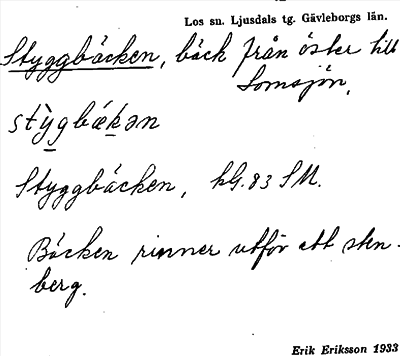 Los sn. Ljusdals tg. Gävleborgs län.
Styggbäcken, bäck från öster till
Lomsjön,
stỳgbäkən
Styggbäcken, hG. 83 SM.
Bäcken rinner utför ett sten-
berg.
Erik Eriksson 1933